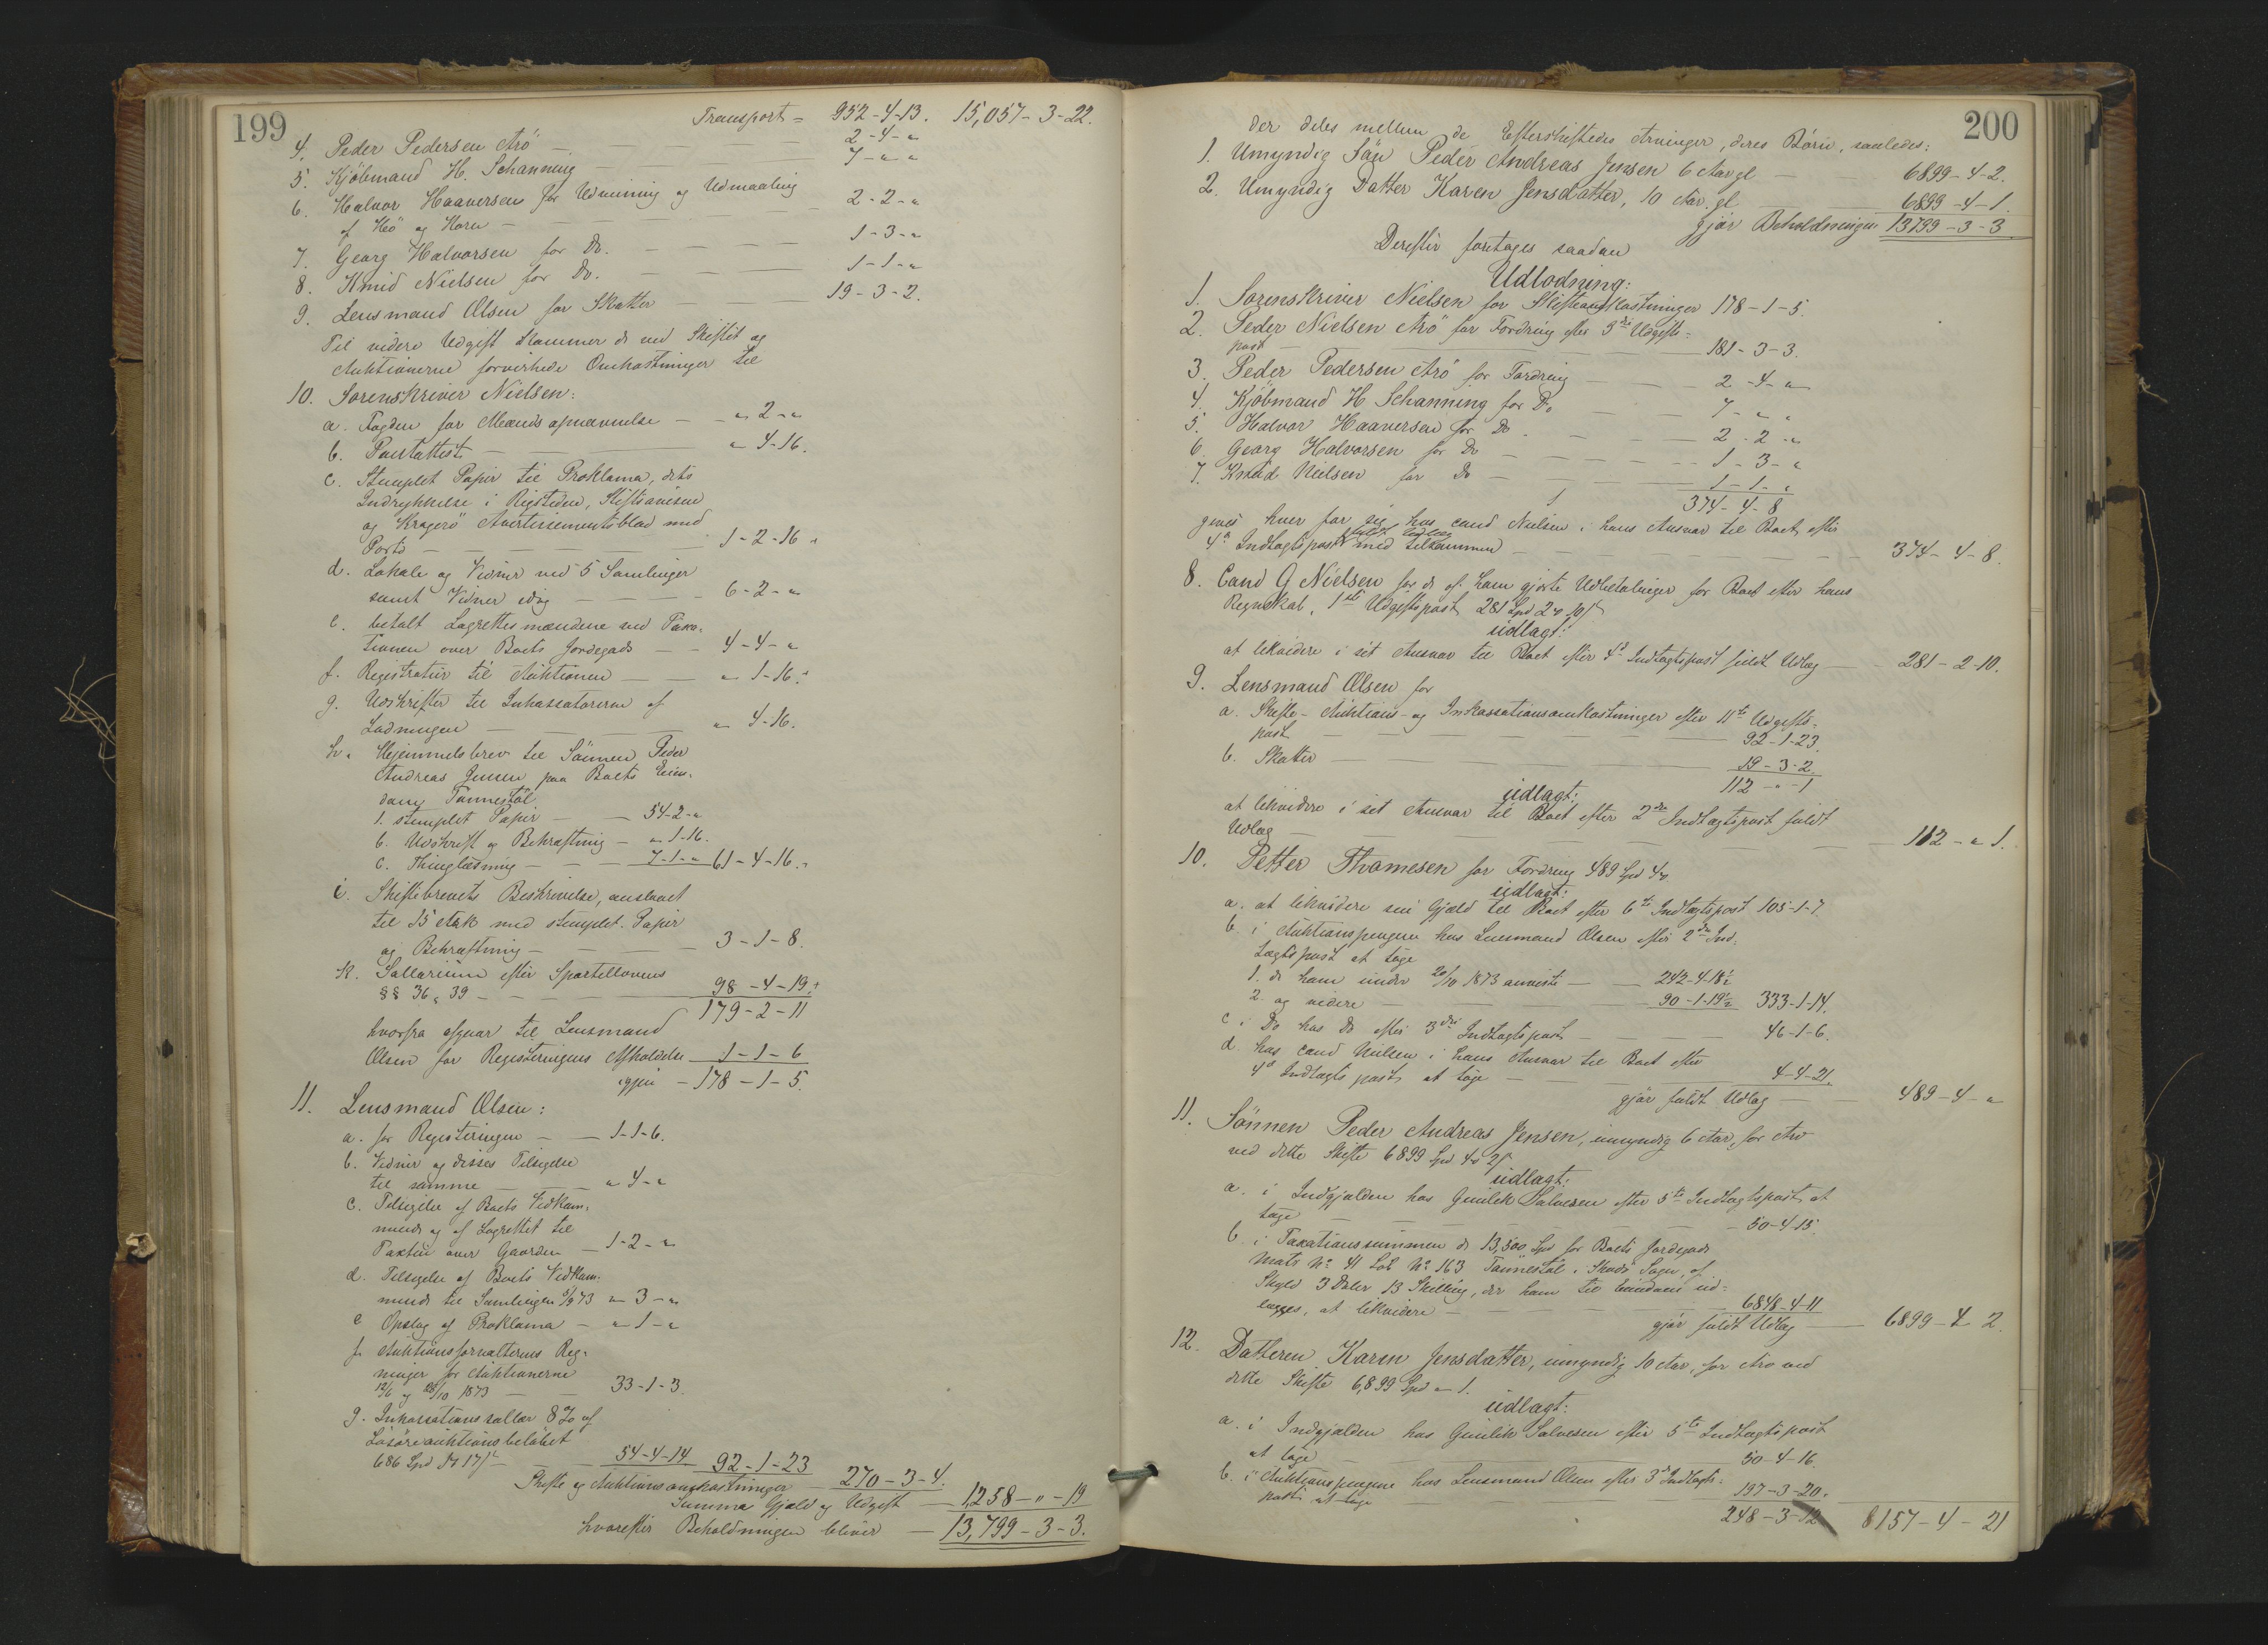 199
Transport = 952-4-13. 15,057-3-22.
4. Peder Pedersen Arö — 2-4-"
5. Kjöbmand H. Schanning 7-"-"
6. Halvor Haaversen for Udvinning og Udmaaling
af Hö og Korn — 2-2-"
7. Georg Halvorsen for Do. — 1-3-"
8. Knud Nielsen for Do. — 1-1-"
9. Lensmand Olsen for Skatter — 19-3-2.
Til videre Udgift kommer de ved Skiftet og
Auktionerne forvirkede Omkostninger til
10. Sorenskriver Nielsen:
a. Fogden for Mænds opnævnelse — "-2-"
b. Postattest — "-4-16.
c. Stemplet Papir til Proklama, dets
Indrykkelse i Rigstiden, Stiftsavisen
og Kragerö Avertissementsblad med
Porto — 1-2-16
d. Lokale og Vidner ved 5 Samlinger
samt Vidner idag — 6-2-"
e. betalt Lagrettesmændene ved Taxa-
tionen over Boets Jordegods — 4-4-"
f. Registratur til Auktionen — "-1-16.
g. Udskrifter til Inkassatorerne af
Lodningen — "-4-16.
h. Hjemmelsbrev til Sönnen Peder
Andreas Jensen paa Boets Eien-
dom Tönnestöl
1. stemplet Papir — 54-2-"
b. Udskrift og Bekræftning — "-1-16.
c. Thinglæsning — 7-1-" 61-4-16.
i. Skiftebrevets Beskrivelse, anslaaet
til 15 Ark med stemplet Papir
og Bekræftning — 3-1-8.
k. Sallarium efter Sportellovens
§§ 36, 39 — 98-4-19.
179-2-11
hvorfra afgaar til Lensmand
Olsen for Registeringens Afholdelse — 1-1-6
igjen — 178-1-5.
11. Lensmand Olsen:
a. for Registeringen — 1-1-6.
b. Vidner og disses Tilsigelse
til samme — "-4-"
c. Tilsigelse af Boets Vedkom-
mende og af Lagrettet til
Taxten over Gaarden — 1-2-"
d. Tilsigelse af Boets Vedkom-
mende til Samlingen 5/9 73 "-3-"
e. Opslag af Proklama — "-1-"
f. Auktionsforvalterens Reg-
ninger for Auktionerne
12/6 og 25/10 1873 — 33-1-3.
g. Inkassationssallær 8% af
Lösöreauktionsbelöbet
54-4-14 92-1-23
Skifte og Auktionsomkostninger 270-3-4.
Summa Gjæld og Udgift — 1,258-"-19
hvorefter Beholdningen bliver — 13,799-3-3.
200
der deles mellem de Efterskiftedes Arvinger, deres Börn, saaledes:
1. Umyndig Sön Peder Andreas Jensen 6 Aar gl — 6899-4-2.
2. Umyndig Datter Karen Jensdatter, 10 Aar gl — 6899-4-1.
gjör Beholdningen 13799-3-3
Derefter foretages saadan
Udlodning:
1. Sorenskriver Nielsen for Skifteomkostninger 178-1-5.
2. Peder Nielsen Arö for Fordring efter 3die Udgifts-
post — 181-3-3.
3. Peder Pedersen Arö for Fordring — 2-4-"
4. Kjöbmand H Schanning for Do — 7-"-"
5. Halvor Haaversen for Do — 2-2-"
6. Georg Halvorsen for Do — 1-3-"
7. Knud Nielsen for Do — 1-1-"
374-4-8
gives hver for sig hos cand Nielsen i hans Ansvar til Boet, efter
4de Indtægtspost fuldt Udlæg med tilkommende — 374-4-8.
8. Cand G Nielsen for de af ham gjorte Udbetalinger for Boet efter hans
Regnskab, 1ste Udgiftspost 281 Spd 2 10
udlagt:
at likvidere i sit Ansvar til Boet efter 4de Indtægtspost fuldt Udlæg — 281-2-10.
9. Lensmand Olsen for
a. Skifte- Auktions- og Inkassationsomkostninger efter 11te Udgifts-
post — 92-1-23.
b. Skatter — 19-3-2.
112-"-1
udlagt:
at likvidere i sit Ansvar til Boet efter 2den Indtægtspost fuldt
Udlæg — 112-"-1.
10. Petter Thomesen for Fordring 489 Spd 4
udlagt:
a. at likvidere sin Gjæld til Boet efter 6te Indtægtspost 105-1-7.
b. i Auktionspengene hos Lensmand Olsen efter 2den Ind-
tægtspost at tage
1. de ham under 20/10 1873 anviste — 242-4-18½
2. og videre — 90-1-19½ 333-1-14.
c. i Do hos Do efter 3die Indtægtspost — 46-1-6.
d. hos cand Nielsen i hans Ansvar til Boet efter
4de Indtægtspost at tage — 4-4-21.
gjör fuldt Udlæg — 489-4-"
11. Sönnen Peder Andreas Jensen, umyndig 6 Aar, for Arv
ved dette Skifte 6899 Spd 4 2
udlagt:
a. i Indgjælden hos Gunlek Salvesen efter 5te Indtægtspost at
tage — 50-4-15.
b. i Taxationssummen de 13,500 Spd for Boets Jordegods
Matr No 41 Löb No 163 Tönnestöl i Skudö Sogn, af
Skyld 3 Daler 13 Skilling, der ham til Eiendom ud-
lægges, at likvidere — 6848-4-11
gjör fuldt Udlæg — 6899-4-2.
12. Datteren Karen Jensdatter, umyndig 10 Aar, for Arv ved
dette Skifte 6,899 Spd " 1.
udlagt:
a. i Indgjælden hos Gunlek Salvesen efter 5te Indtægtspost
at tage — 50-4-16.
b. i Auktionspengene hos Lensmand Olsen efter 3die Indtægts-
post at tage 197-3-20.
248-3-12 8157-4-21